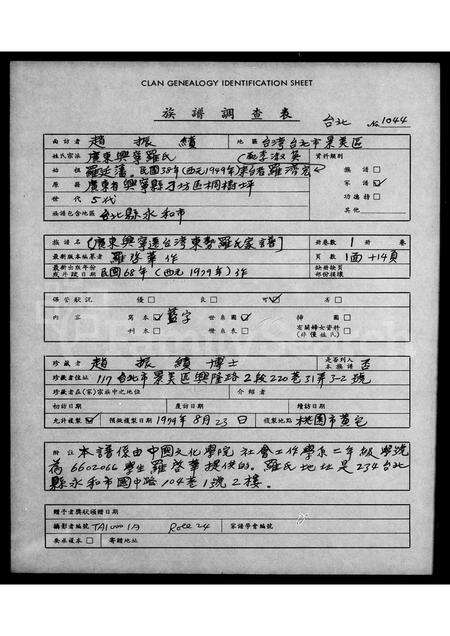 CLAN GENEALOGY IDENTIFICATION SHEET
族譜調查表 台北 No 1044
面訪者 趙振績 地區 台灣台北市景美區
姓氏宗派 廣東興寧羅氏 資料類別
始祖 羅廷藩 民國38年(西元1949年) 族譜 □
原籍 廣東省興寧縣刁坊區桐樹坪 家譜 ☑
世代 5代 功德榜 □
族譜包含地區 台北縣永和市 其他
族譜名 [廣東興寧遷台灣東勢羅氏家譜] 冊卷數 1 冊卷
最新版本編著者 羅啓華 作 頁數 1面+14頁
最新出版年份或手設日期 民國68年(西元1979年)作 缺冊缺頁部份損壞
保管狀況 優 □ 良 □ 可 ☑ 差 □
內容 寫本 ☑ 藍字 世系圖 ☑ 插圖 □
刊本 □ 世系表 □ 有關婦女資料 □
(非僅姓氏)
珍藏者 趙振績博士 是否列入本族譜 否
珍藏者住址 117台北市景美區興隆路2段220巷31弄3-2號
珍藏者在(家)宗族中之地位 介紹者
初訪日期 度訪日期 續訪日期
允許複製 ☑ 預擬複製日期 1979年8月23日 複製地點 桃園市黃宅
附註 本譜係由中國文化學院社會工作學系二年級學號
為6602066學生羅啓華提供的。羅氏地址是234台北
縣永和市國中路104巷1號2樓。
贈予者獎狀頒贈日期
攝影者編號 TAIWAN 1A Roll 24 家譜學會編號
要求複本 □ 寄贈地址